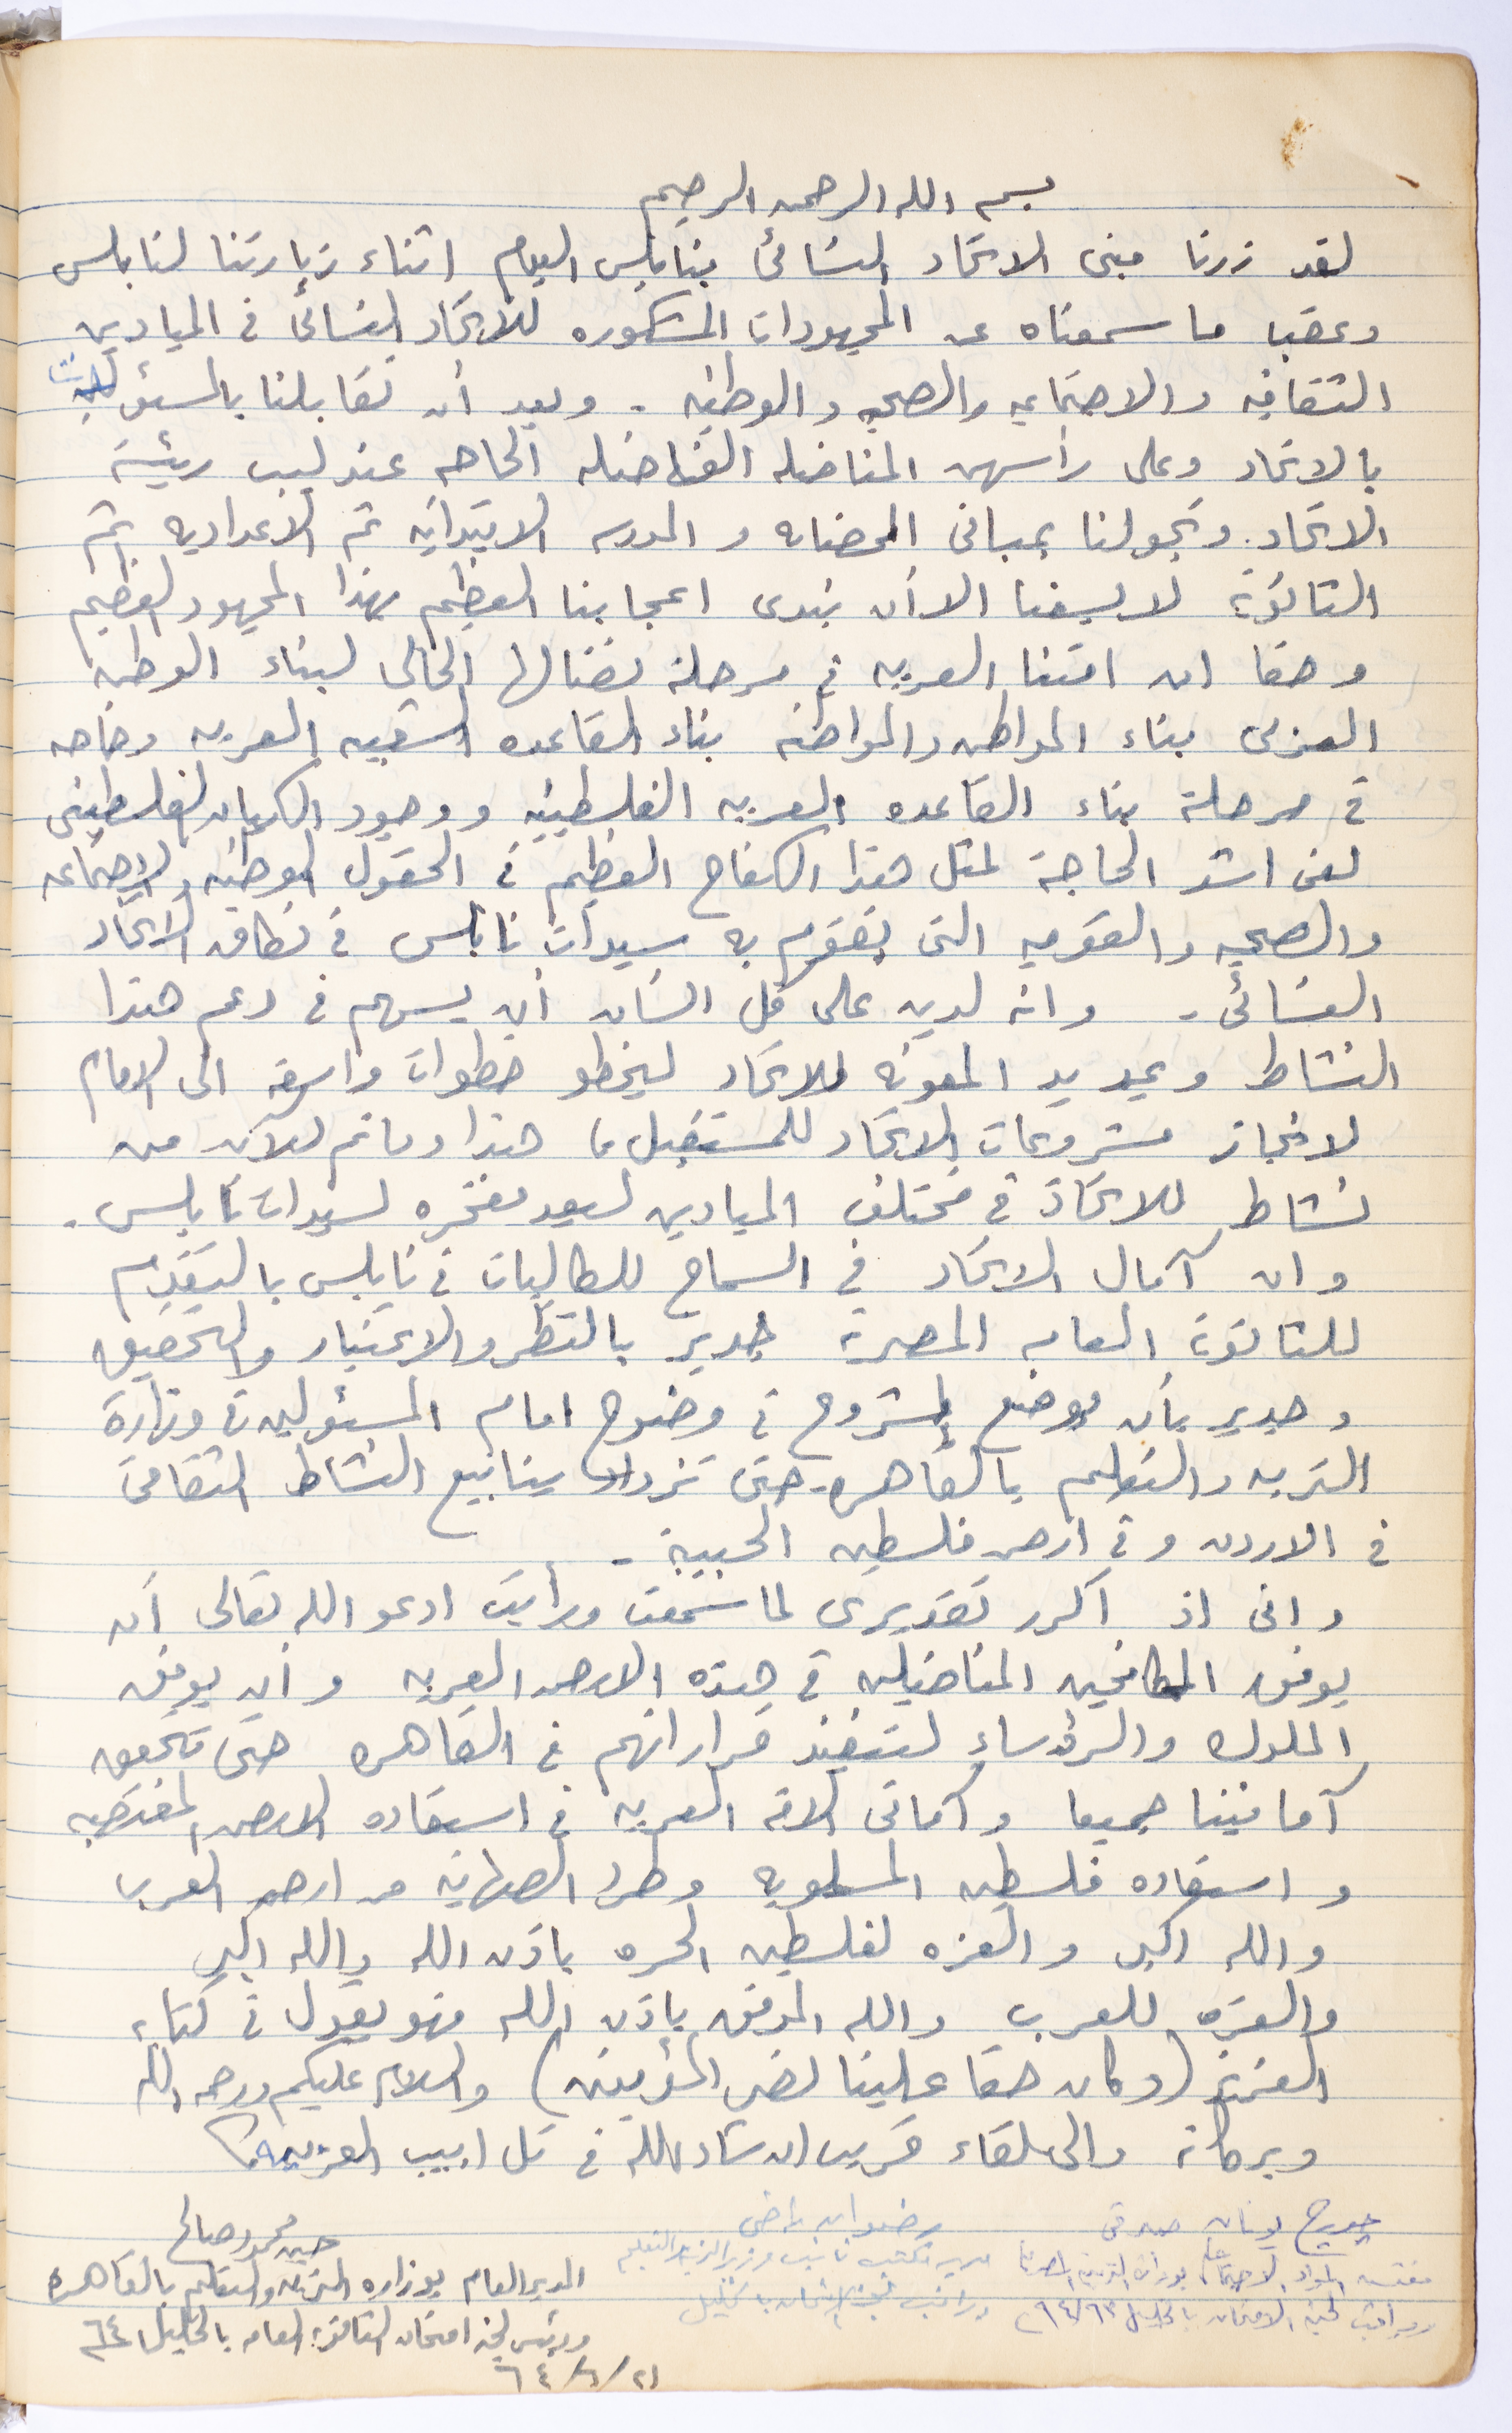 بسم الله الرحمن الرحيم
لقد زرنا مبنى الاتحاد النسائى بنابلس اليوم اثناء زيارتنا لنابلس
وعقب ما سمعناه عن المجهودات المشكوره للاتحاد النسائى فى الميادين
الثقافيه والاجتماعيه والصحيه والوطنيه - وبعد أن تقابلنا بالمسئولات
بالاتحاد وعلى رأسهن المناضله الفاضله الحاجه عندليب رئيسة
الاتحاد. وتجولنا بمبانى الحضانه و المدرسه الابتدائيه ثم الاعداديه ثم
الثانوية لا يسعنا الا أن نبدى اعجابنا العظيم بهذا المجهود العظيم
وحقا ان امتنا العربيه فى مرحلة نضالها الحالى لبناء الوطن
العربى بناء المواطن والمواطنه بناء القاعده الشعبيه العربيه وخاصه
فى مرحلة بناء القاعده العربيه الفلسطينيه ووجود الكيان الفلسطينى
لفى اشد الحاجة لمثل هذا الكفاح العظيم فى الحقول الوطنيه والاجتماعيه
والصحيه والقوميه التى تقوم به سيدات نابلس فى نطاق الاتحاد
النسائى - وانه لدين على كل انسان أن يسهم فى دعم هذا
النشاط و بمد يد المعونه للاتحاد ليخطو خطوات واسعه الى الامام
لانجاز مشروعات الاتحاد للمستقبل هذا وما تم للآن من
نشاط للاتحاد فى مختلف الميادين ليعد مفخره لسيدات نابلس -
وان آمال الاتحاد فى السماح للطالبات فى نابلس بالتقدم
للثانوية العامه المصرية جدير بالنظر والاعتبار والتحقيق
وجدير بأن يوضع المشروع فى وضوح امام المسئولين فى وزارة
التربيه والتعليم بالقاهره - حتى تزداد ينابيع النشاط الثقافى
فى الاردن وفى ارض فلسطين الحبيبة -
وانى اذ اكرر تقديرى لما سمعت ورأيت ادعو الله تعالى أن
يوفق المكافحين المناضلين فى هذه الارض العربيه وأن يوفق
الملوك والرؤساء لتنفيذ قراراتهم فى القاهره حتى تتحقق
آمانينا جميعا وآمانى الامه العربيه فى استعاده الارض المغتصبه
واستعاده فلسطين المسلوبه وطرد الصهاينه من ارض العرب
والله اكبر والعزه لفلسطين الحره باذن الله والله اكبر
والعزه للعرب والله الموفق باذن الله فهو يقول فى كتابه
العزيز (وكان حقا علينا نصر المؤمنين) والسلام عليكم ورحمه الله
وبركاته والى لقاء قريب ان شاء الله فى تل ابيب العربيه
جورج يونان صدقى
مفتش المواد الاجتماعيه بوزاره التربيه
ومراقب لجنة الامتحان بالخليل ٦٣/٦٤
رضوان راضى
مدير مكتب نائب وزير التربيه والتعليم
ومراقب لجنة الامتحان بالخليل
حسين محمود صالح
المدير العام بوزاره التربيه والتعليم بالقاهره
ورئيس لجنة امتحان الثانوية العامه بالخليل ٦٤
٢١/٦/٦٤